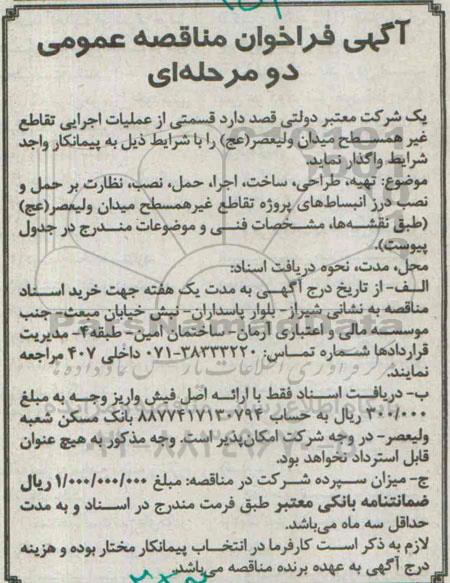 آگهی فراخوان مناقصه عمومی
دو مرحله‌ای
یک شرکت معتبر دولتی قصد دارد قسمتی از عملیات اجرایی تقاطع
غیر همسطح میدان ولیعصر(عج) را با شرایط ذیل به پیمانکار واجد
شرایط واگذار نماید.
موضوع: تهیه، طراحی، ساخت، اجرا، حمل، نصب، نظارت بر حمل و
نصب درز انبساط‌های پروژه تقاطع غیرهمسطح میدان ولیعصر(عج)
(طبق نقشه‌ها، مشخصات فنی و موضوعات مندرج در جدول
پیوست).
محل، مدت، نحوه دریافت اسناد:
الف- از تاریخ درج آگهی به مدت یک هفته جهت خرید اسناد
مناقصه به نشانی شیراز- بلوار پاسداران- نبش خیابان مبعث- جنب
موسسه مالی و اعتباری آرمان- ساختمان امین- طبقه۴- مدیریت
قراردادها شماره تماس: ۳۸۳۳۳۲۲۰-۰۷۱ داخلی ۴۰۷ مراجعه
نمایند.
ب- دریافت اسناد فقط با ارائه اصل فیش واریز وجه به مبلغ
۳۰۰/۰۰۰ ریال به حساب ۸۸۷۷۴۱۷۱۳۰۷۹۴ بانک مسکن شعبه
ولیعصر- در وجه شرکت امکان‌پذیر است. وجه مذکور به هیچ عنوان
قابل استرداد نخواهد بود.
ج- میزان سپرده شرکت در مناقصه: مبلغ ۱/۰۰۰/۰۰۰/۰۰۰ ریال
ضمانتنامه بانکی معتبر طبق فرمت مندرج در اسناد و به مدت
حداقل سه ماه می‌باشد.
لازم به ذکر است کارفرما در انتخاب پیمانکار مختار بوده و هزینه
درج آگهی به عهده برنده مناقصه می‌باشد.